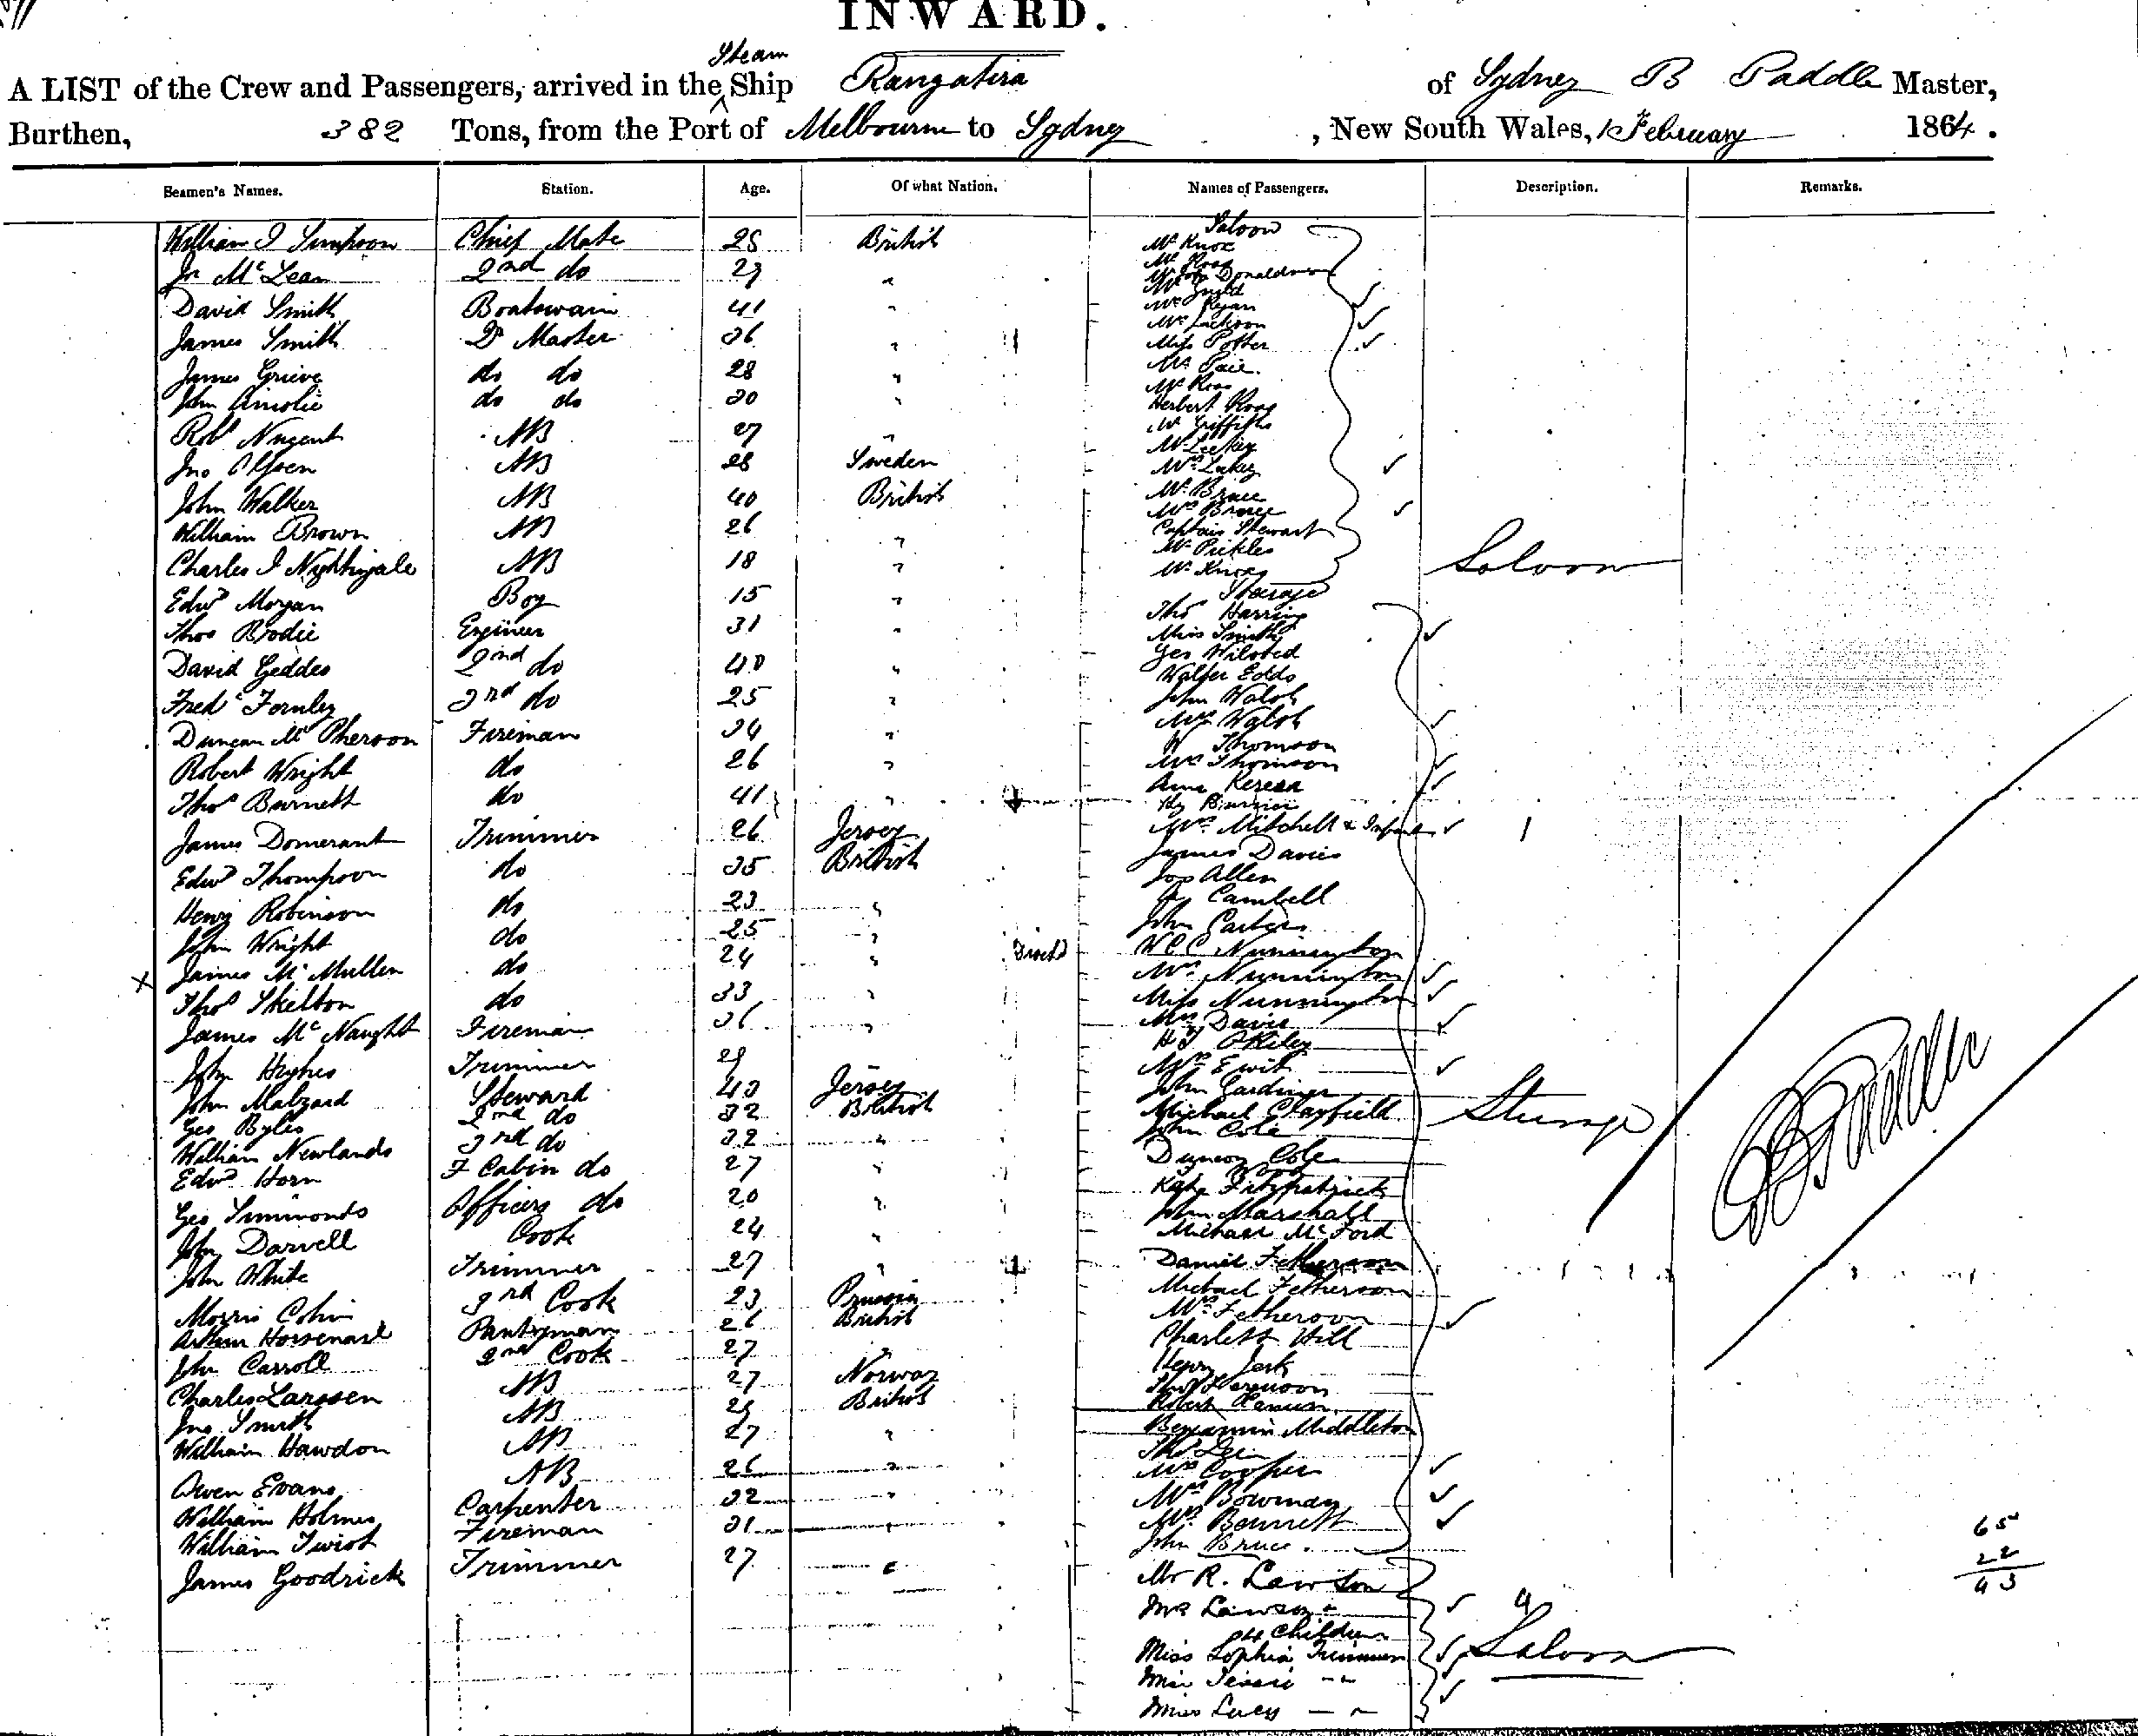 INWARD.
Steam
A LIST of the Crew and Passengers, arrived in the ^ Ship Rangatira of Sydney B Paddle Master,
Burthen, 382 Tons, from the Port of Melbourne to Sydney, New South Wales, 1 February 1864.
Seamen's Names. Station. Age. Of what Nation. Names of Passengers. Description. Remarks.
Saloon
William J Simpson Chief Mate 28 British Mr Knox
Jn McLean 2nd do 29 " Mr John Donaldson
David Smith Boatswain 41 " Mrs Regan
Mrs Jackson
James Smith Qr Master 36 " Miss Potter
James Grieve do do 28 "
Mr Ross
John Ainslie do do 30 " Herbert Ross
Robt Nugent AB 27 " Mr Griffiths
Jno Olfsen AB 28 Sweden Mrs Lakey
John Walker AB 40 British Mr Bruce
Mrs Bruce
William Brown AB 26 " Captain Stewart
Mr Pickles
Charles J Nightingale AB 18 " Mr Knox Saloon
Steerage
Edwd Morgan Boy 15 " Thos Harring
Thos Brodie Engineer 31 " Miss Smith
Geo Wilsted
David Geddes 2nd do 40 " Walter Edds
Fredc Fernley 3rd do 25 " John Walsh
Mrs Walsh
Duncan McPherson Fireman 34 " W Thomson
Robert Wright do 26 " Mrs Thomson
Thos Burnett do 41 "
James Domerant Trimmer 26 Jersey Mrs Mitchell & Infant 1
Edwd Thompson do 35 British James Davies
Jos Allen
Henry Robinson do 23 " Cambell
John Wright do 25 " John Carters
James McMullen do 24 " W C C Nunnington
Mrs Nunnington
Thos Skelton do 33 " Miss Nunnington
James McNaught Fireman 36 " Mrs Davis
H J O'Riley
John Hughes Trimmer 29 Mrs Ewit
John Malzard Steward 43 Jersey John Gardiner
Geo Byles 2nd do 32 British Michael Clayfield Steerage
John Cole
William Newlands 3rd do 32 " Duncan Cole
Edwd Horn F Cabin do 27 " Kate Fitzpatrick
Geo Simmonds Officers do 20 " John Marshall
John Darvell Cook 24 " Michael McFord
John White Trimmer 27 " Daniel Fetherson
Morris Cohin 3rd Cook 23 Prussia Michael Fetherson
Arthur Horsenail Pantryman 26 British Mrs Fetherson
John Carroll 2nd Cook 27 " Charlett Hill
Charles Larssen AB 27 Norway Henry Jark
Thos Ferguson
Jno Smith AB 29 British Robert
William Hawdon AB 27 " Benjamin Middleton
Owen Evans AB 26 " Mrs Cooper
William Holmes Carpenter 32 " Mrs Bowman
William Twist Fireman 31 Mrs Bennett
James Goodrick Trimmer 27 " John Bruce
Mr R. Lawson
Mrs Lawson
& 4 Children 4
Miss Sophia Trimmer Saloon
Miss Jessie
Miss Lucy
B Paddle
65
22
43